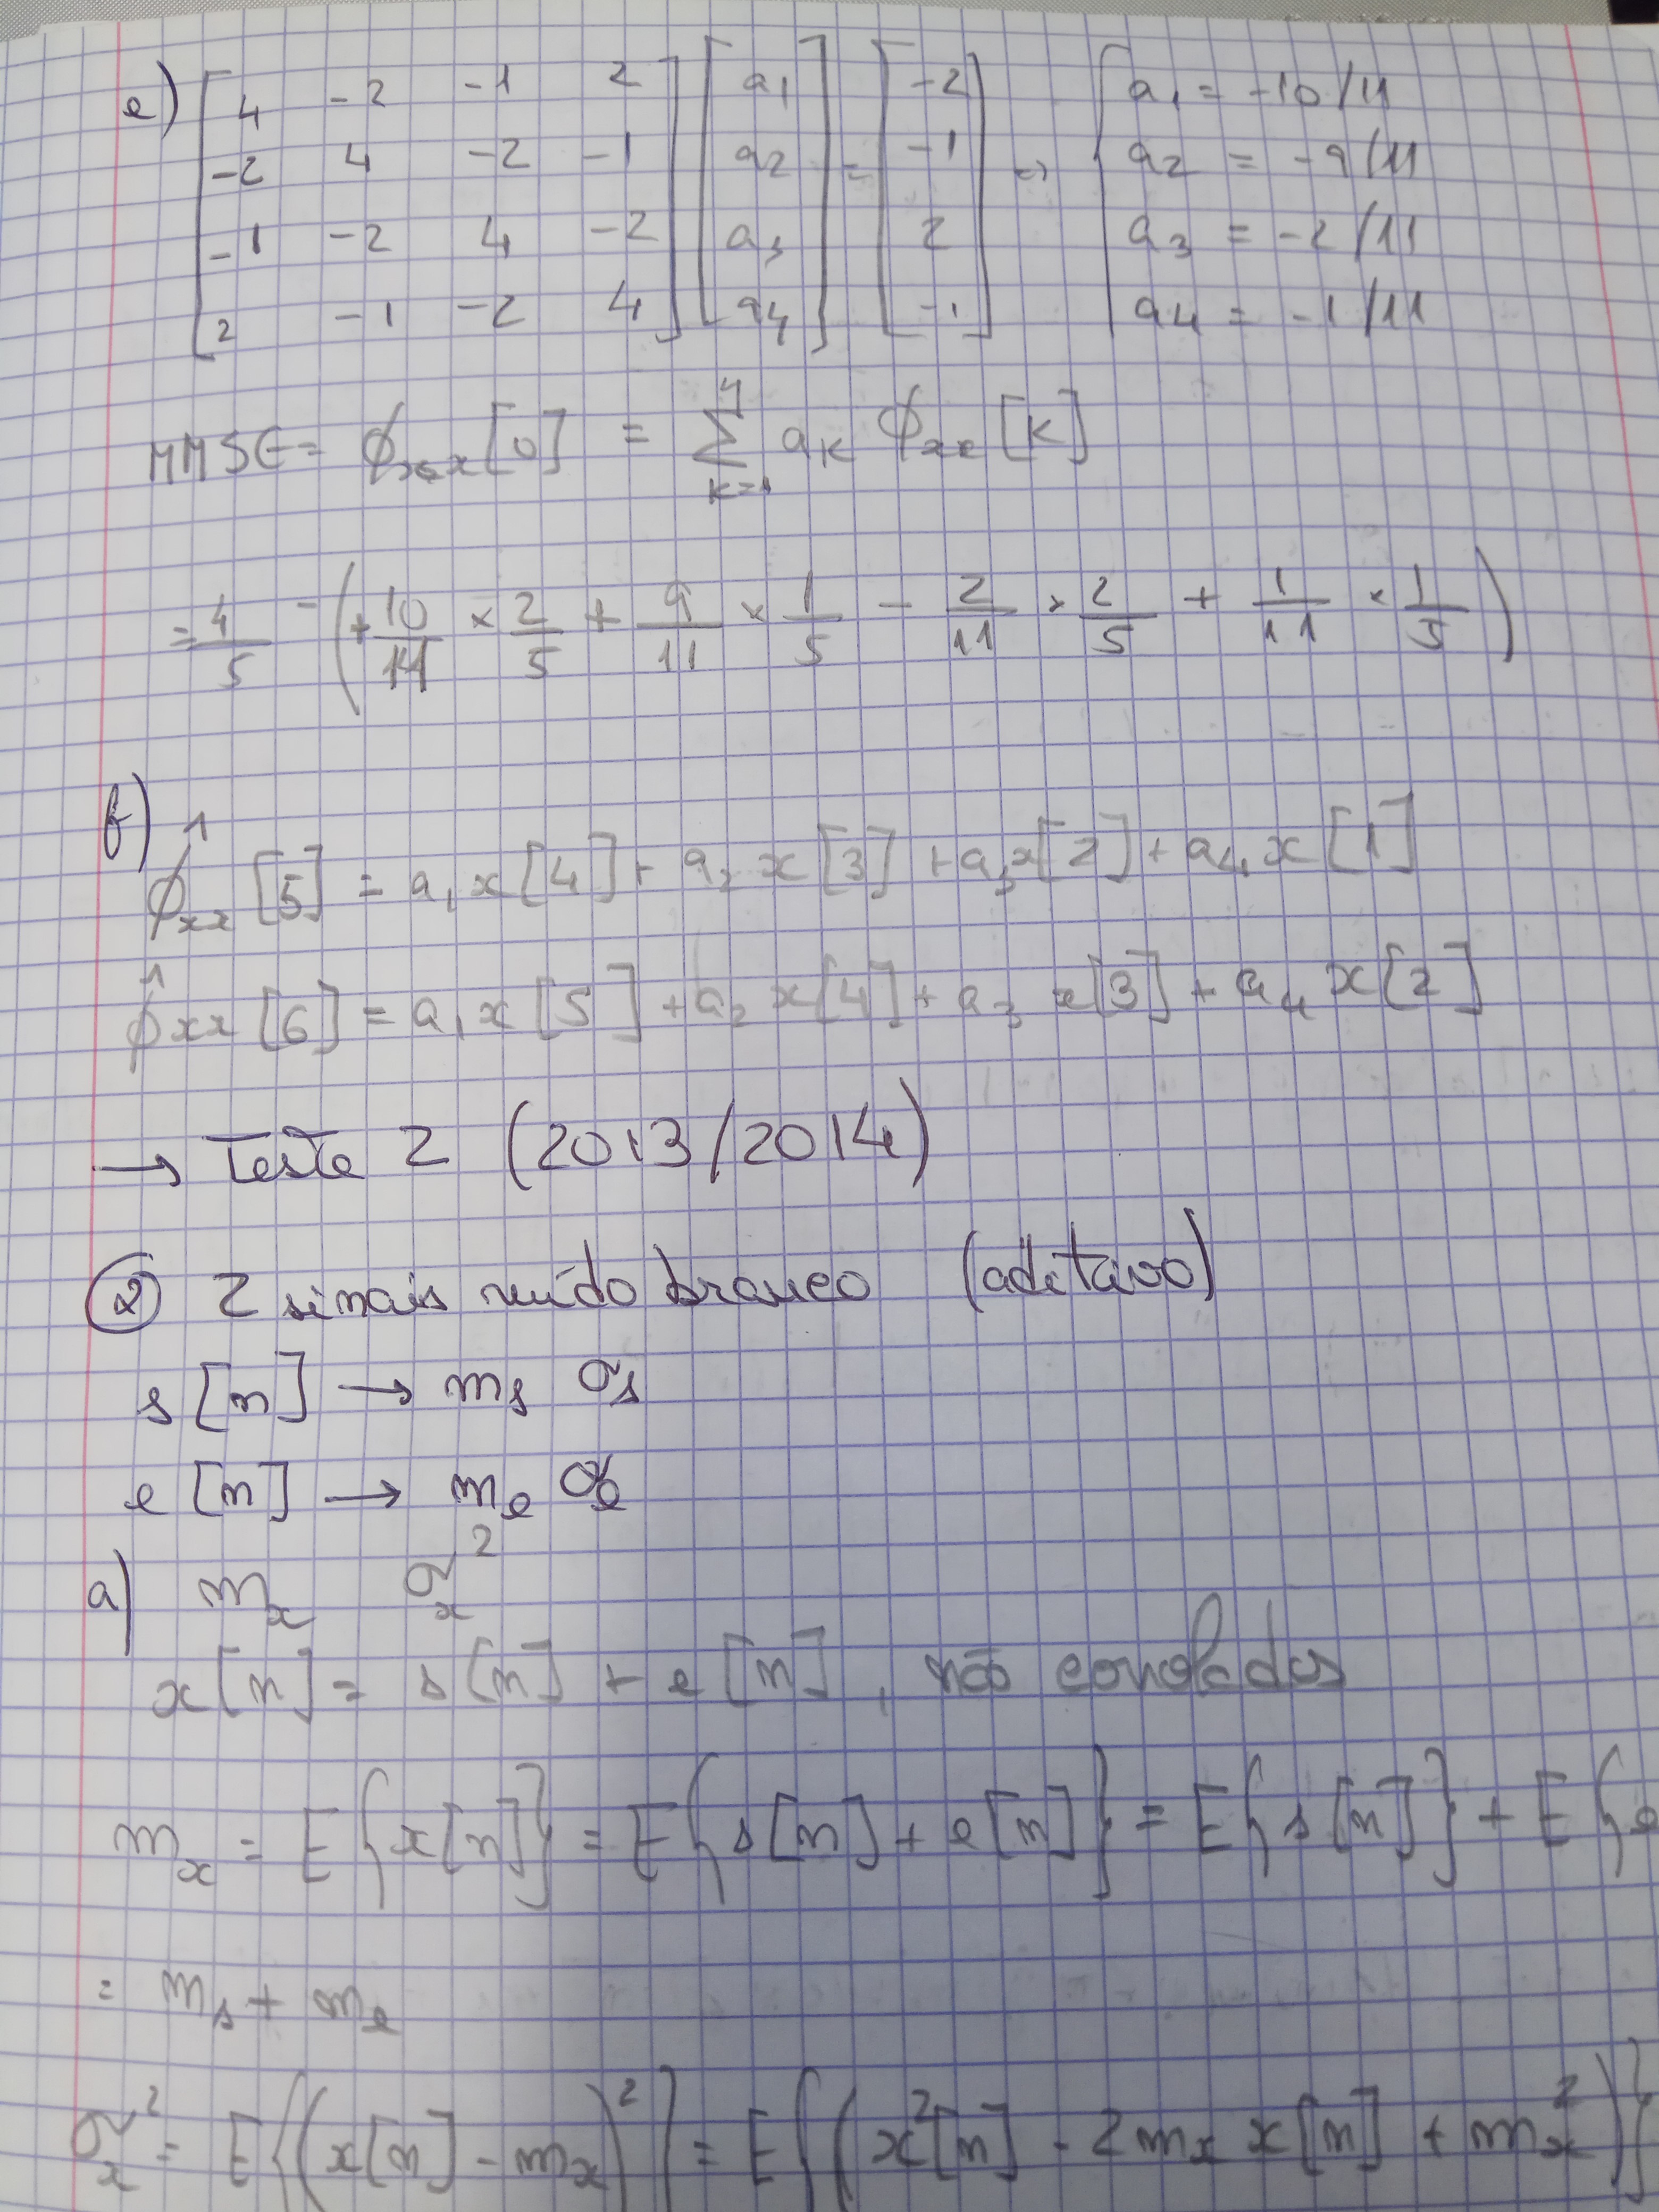 e) [4 -2 -1 2] [a1] = [-2] → { a1 = -10/11
[-2 4 -2 -1] [a2] [-1] a2 = -9/11
[-1 -2 4 -2] [a3] [2] a3 = -2/11
[2 -1 -2 4] [a4] [-1] a4 = -1/11
MMSE = ϕxx[0] = Σ_{k=1}^{4} ak ϕxx[k]
= 4/5 - (+ 10/11 × 2/5 + 9/11 × 1/5 - 2/11 × 2/5 + 1/11 × 1/5)
f)
ϕ̂xx[5] = a1 x[4] + a2 x[3] + a3 x[2] + a4 x[1]
ϕ̂xx[6] = a1 x[5] + a2 x[4] + a3 x[3] + a4 x[2]
→ Teste 2 (2013/2014)
② 2 sinais ruído branco (aditivo)
s[n] → ms σs
e[n] → me σe
a) mx σx²
x[n] = s[n] + e[n], não
mx = E{x[n]} = E{s[n] + e[n]} = E{s[n]} + E{e
= ms + me
σx² = E{(x[n] - mx)²} = E{(x²[n] - 2mx x[n] + mx²)}